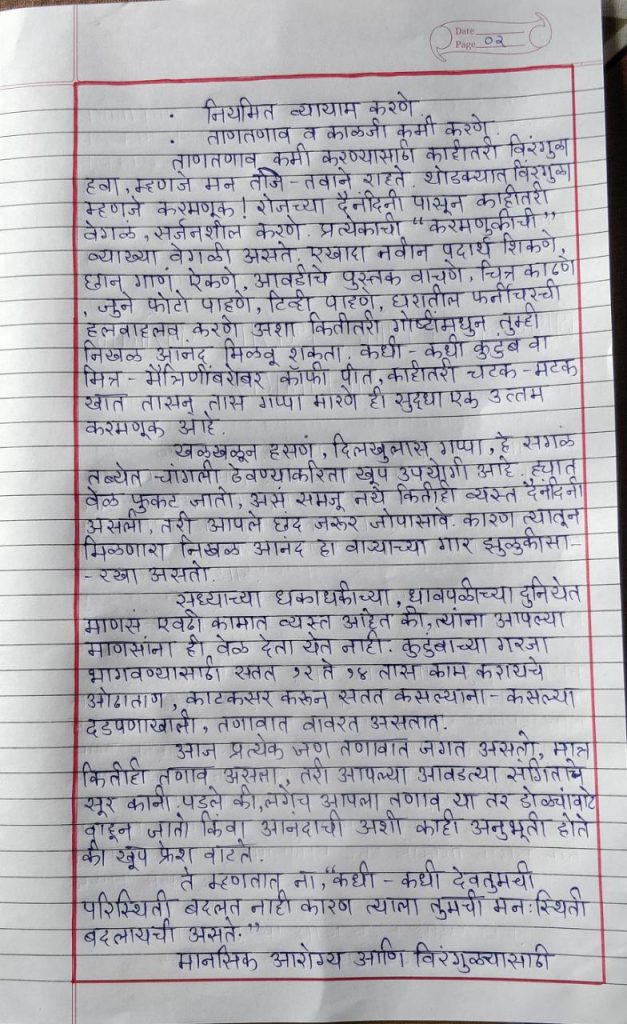 Date
Page ०२
· नियमित व्यायाम करणे
· ताणतणाव व काळजी कमी करणे.
ताणतणाव कमी करण्यासाठी काहीतरी विरंगुळा
हवा, म्हणजे मन ताजे-तवाने राहते. थोडक्यात विरंगुळा
म्हणजे करमणूक! रोजच्या दैनंदिनी पासून काहीतरी
वेगळं, सर्जनशील करणे. प्रत्येकाची "करमणुकीची"
व्याख्या वेगळी असते. एखादा नवीन पदार्थ शिकणे,
छान गाणं ऐकणे, आवडीचे पुस्तक वाचणे, चित्र काढणे
, जुने फोटो पाहणे, टिव्ही पाहणे, घरातील फर्नीचरची
हलवाहलव करणे अशा कितीतरी गोष्टींमधुन तुम्ही
निखळ आनंद मिळवू शकता. कधी-कधी कुटुंब वा
मित्र-मैत्रिणींबरोबर कॉफी पीत, काहीतरी चटक-मटक
खात तासन् तास गप्पा मारणे ही सुद्धा एक उत्तम
करमणूक आहे.
खळखळून हसणं, दिलखुलास गप्पा, हे सगळं
तब्येत चांगली ठेवण्याकरिता खूप उपयोगी आहे. ह्यात
वेळ फुकट जातो, असे समजू नये कितीही व्यस्त दैनंदिनी
असली, तरी आपले छंद जरुर जोपासावे. कारण त्यातून
मिळणारा निखळ आनंद हा वाऱ्याच्या गार झुळुकीसा-
-रखा असतो.
सध्याच्या धकाधकीच्या, धावपळीच्या दुनियेत
माणसं एवढी कामात व्यस्त आहेत की, त्यांना आपल्या
माणसांना ही वेळ देता येत नाही. कुटुंबाच्या गरजा
भागवण्यासाठी सतत १२ ते १४ तास काम करायचे
ओढाताण, काटकसर करून सतत कसल्याना-कसल्या
दडपणाखाली, तणावात वावरत असतात.
आज प्रत्येक जण तणावात जगत असतो, मात्र
कितीही तणाव असला, तरी आपल्या आवडत्या संगिताचे
सूर कानी पडले की, लगेच आपला तणाव या तर डोळ्यांवाटे
वाहून जातो किंवा आनंदाची अशी काही अनुभूती होते
की खूप फ्रेश वाटते.
ते म्हणतात ना, "कधी-कधी देव तुमची
परिस्थिती बदलत नाही कारण त्याला तुमची मनःस्थिती
बदलायची असते."
मानसिक आरोग्य आणि विरंगुळ्यासाठी